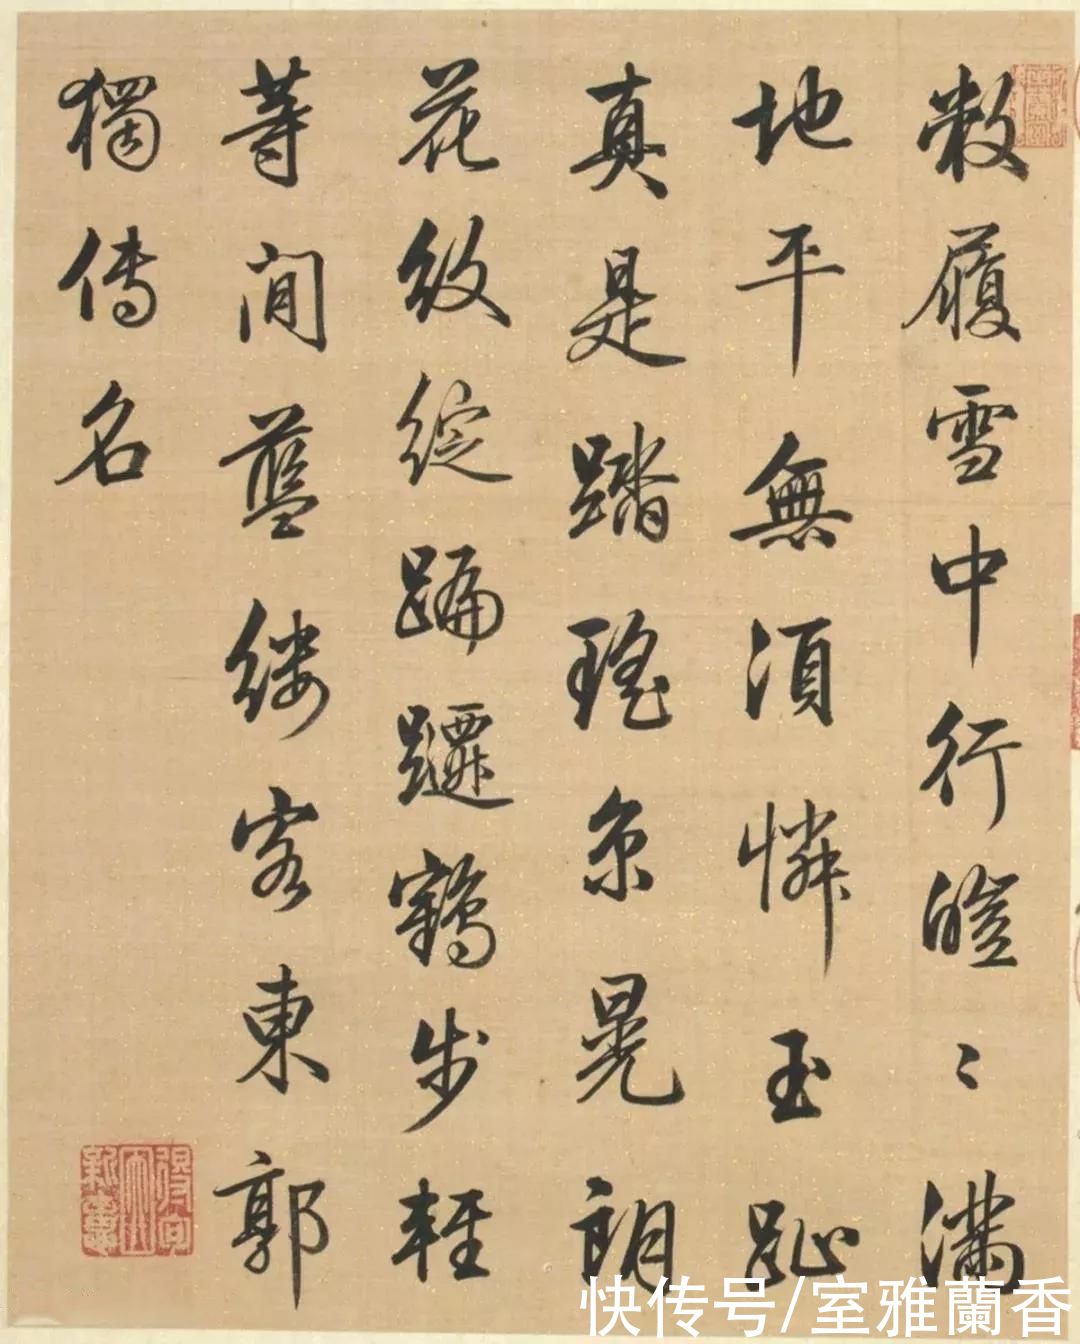 敝履雪中行皚〻滿
地平無須憐玉趾
真是踏瑤京晃朗
花紋綻蹁躚鶴步輕
等閒藍縷客東郭
獨傳名
快传号/室雅蘭香